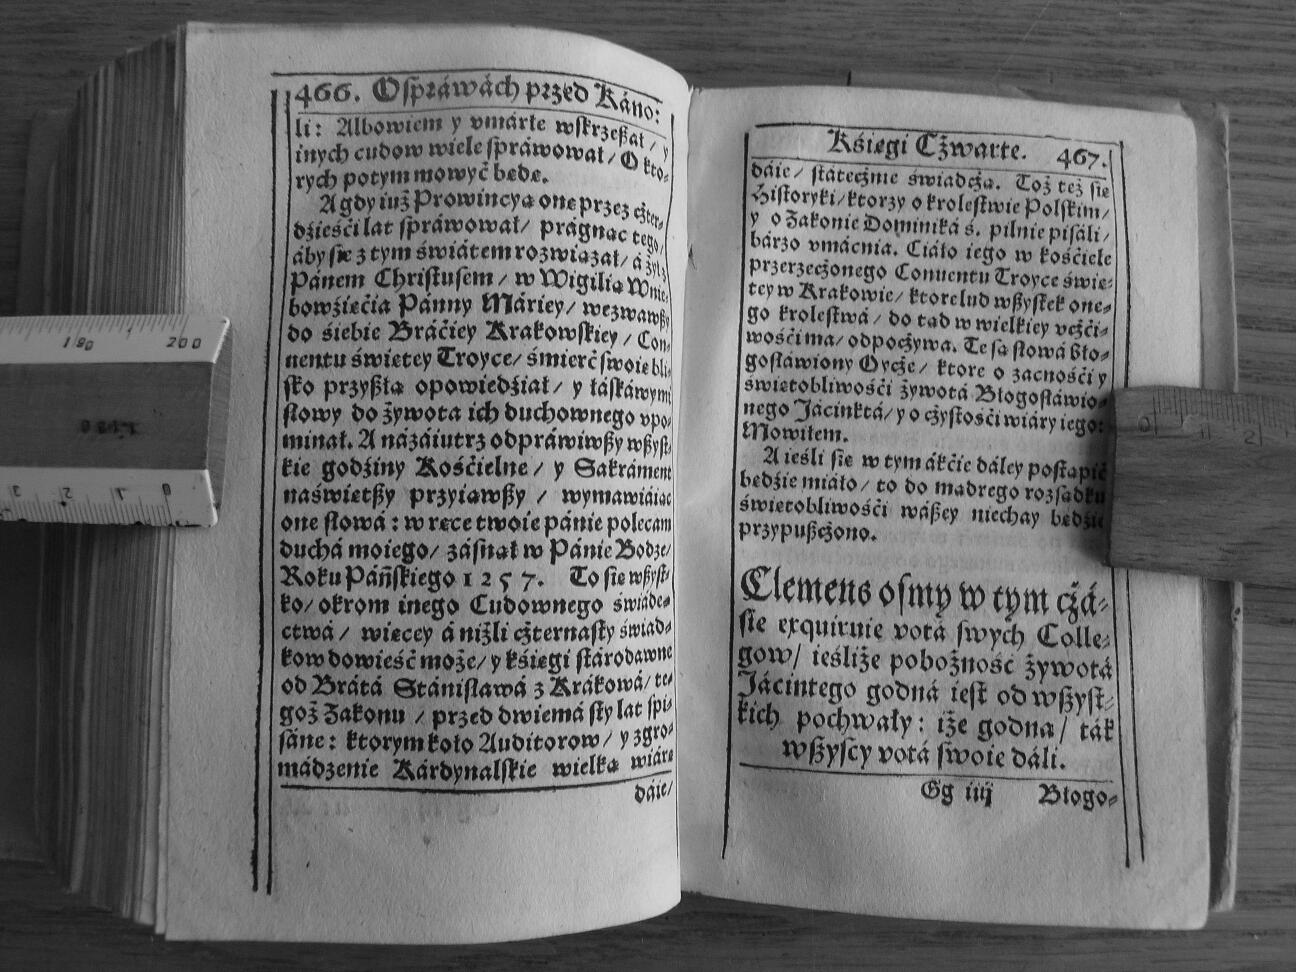 466. O spráwách przed Káno:
li: Albowiem y vmárłe wskrzeßał / y
inych cudow wiele spráwował / O kto-
rych potym mowyć będe.
A gdy iuż Prowincyą onę przez cżter-
dźieśći lat spráwował / prágnąc tego /
áby się z tym światem rozwiązał / á żył z
Pánem Christusem / w Wigilią Wnie-
bowźięćia Pánny Máriey / wezwawßy
do śiebie Bráciey Krakowskiey / Con-
uentu świętey Troyce / śmierć swoię bli-
sko przyßłą opowiedźiał / y łáskáwymi
słowy do żywota ich duchownego vpo-
minał. A názáiutrz odpráwiwßy wßyst-
kie godźiny Kośćielne / y Sakráment
naświętßy przyiąwßy / wymawiáiąc
one słowá : w ręce twoie pánie polecam
duchá moiego / zásnął w Pánie Bodze /
Roku Páńskiego 1257. To się wßyst-
ko / okrom inego Cudownego świáde-
ctwá / więcey á niżli cżternasty świad-
kow dowieść może / y kśięgi stárodawne
od Brátá Stánisławá z Krákowá / te-
goż Zakonu / przed dwiemá sty lat spi-
sáne : ktorym koło Auditorow / y zgro-
mádzenie Kárdynalskie wielką wiárę
dáie /
Kśięgi Cżwarte. 467.
dáie / státecżnie świadcżą. Toż też się
Historyki / ktorzy o krolestwie Polskim /
y o Zakonie Dominiká ś. pilnie pisáli /
bárzo vmácnia. Ciáło iego w kośćiele
przerzecżonego Conuentu Troyce świę-
tey w Krakowie / ktore lud wßystek one-
go krolestwá / do tąd w wielkiey vcżći-
wośći ma / odpocżywa. Te są słowá bło-
gosławiony Oycże / ktore o zacnośći y
świętobliwośći żywotá Błogosłáwio-
nego Jácinktá / y o cżystośći wiáry iego:
Mowiłem.
A ieśli się w tym ákćie dáley postąpić
będźie miáło / to do mądrego rozsądku
świętobliwośći wáßey niechay będźie
przypußcżono.
Clemens osmy w tym cżá-
sie exquiruie votá swych Colle-
gow / ieśliże pobożność żywotá
Jácintego godná iest od wßyst-
kich pochwały : iże godna / ták
wßyscy votá swoie dáli.
Gg iiij Błogo-